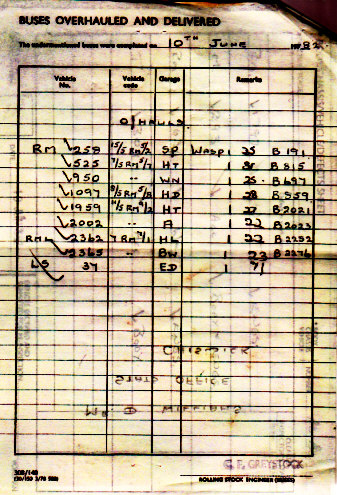 BUSES OVERHAULED AND DELIVERED
The undermentioned buses were completed on 10TH JUNE 1982
Vehicle No. Vehicle code Garage Remarks
O/HAULS
RM 258 15/5 RM 5/2 SP WASP 1 25 B 191
525 7/5 RM 5/7 HT 1 B 815
950 " WN 1 25 B 697
1097 8/5 RM 5/8 HD 1 28 B 959
1959 HT 1 27 B 2021
2002 " A 1 22 B 2023
RM 2362 7 RM 7/1 HL 1 22 B 2252
2365 " BW 1 23 B 2276
LS 37 ED 1
CHISWICK
STATS OFFICE
MR D
30B/140
G. F. GREYSTOCK
ROLLING STOCK ENGINEER